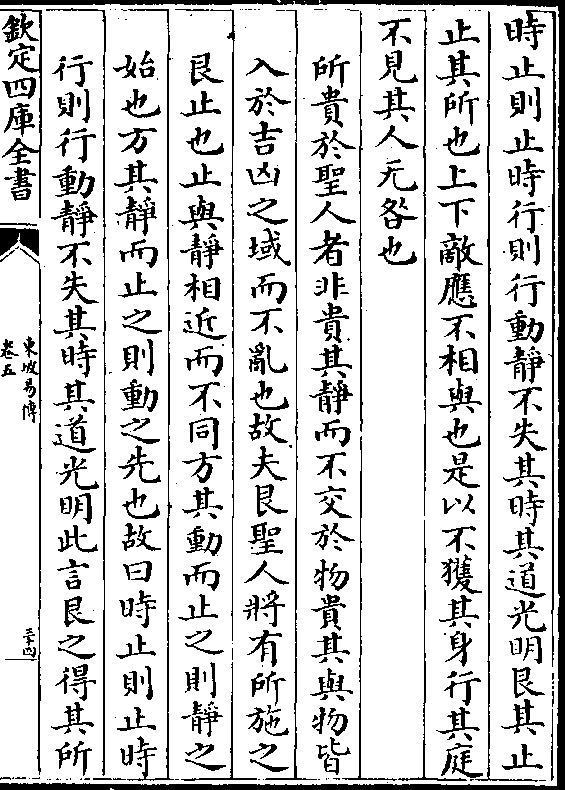 時止則止時行則行動靜不失其時其道光明艮其止
止其所也上下敵應不相與也是以不獲其身行其庭
不見其人无咎也
所貴於聖人者非貴其靜而不交於物貴其與物皆
入於吉凶之域而不亂也故夫艮聖人將有所施之
艮止也止與靜相近而不同方其動而止之則靜之
始也方其靜而止之則動之先也故曰時止則止時
行則行動靜不失其時其道光明此言艮之得其所
欽定四庫全書
東坡易傳
卷五
三十四